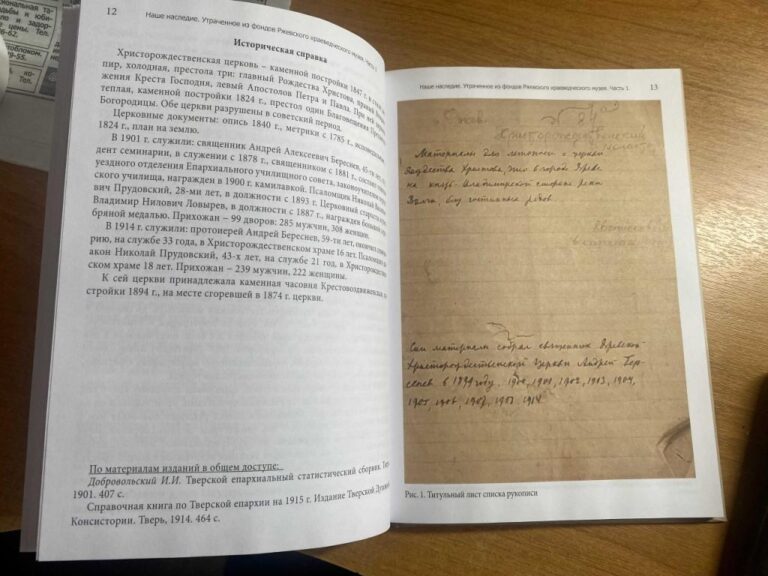 12
Наше наследие. Утраченное из фондов Ржевского краеведческого музея. Часть 1.
Историческая справка
Христорождественская церковь – каменной постройки 1847 г.
пир, холодная, престола три: главный Рождества Христова, правый
жения Креста Господня, левый Апостолов Петра и Павла. При ней
теплая, каменной постройки 1824 г., престол один Благовещения
Богородицы. Обе церкви разрушены в советский период.
Церковные документы: опись 1840 г., метрики с 1785 г.,
1824 г., план на землю.
В 1901 г. служили: священник Андрей Алексеевич Береснев, 45-ти лет,
дент семинарии, в служении с 1878 г., священником с 1881 г., состоит
уездного отделения Епархиального училищного совета,
ского училища, награжден в 1900 г. камилавкой. Псаломщик Николай
вич Прудовский, 28-ми лет, в должности с 1893 г. Церковный староста
Владимир Нилович Ловырев, в должности с 1887 г., награжден
бряной медалью. Прихожан – 99 дворов: 285 мужчин, 308 женщин.
В 1914 г. служили: протоиерей Андрей Береснев, 59-ти лет, окончил
рию, на службе 33 года, в Христорождественском храме 16 лет.
акон Николай Прудовский, 43-х лет, на службе 21 год, в
ском храме 18 лет. Прихожан – 239 мужчин, 222 женщины.
К сей церкви принадлежала каменная часовня Крестовоздвиженская,
стройки 1894 г., на месте сгоревшей в 1874 г. церкви.
По материалам изданий в общем доступе:
Добровольский И.И. Тверской епархиальный статистический сборник.
1901. 407 с.
Справочная книга по Тверской епархии на 1915 г. Издание Тверской
Консистории. Тверь, 1914. 464 с.
Наше наследие. Утраченное из фондов Ржевского краеведческого музея. Часть 1.
13
Христорождественский
Материалы для летописи о церкви
Рождества Христова, что в городе Ржеве
на князь-Владимирской стороне реки
Волги, близ гостинных рядов.
Сии материалы собрал священник Ржевской
Христорождественской церкви Андрей Бер-
сенев в 1899 году, 1900, 1901, 1902, 1903, 1904,
1905, 1906, 1907, 1914
Рис. 1. Титульный лист списка рукописи